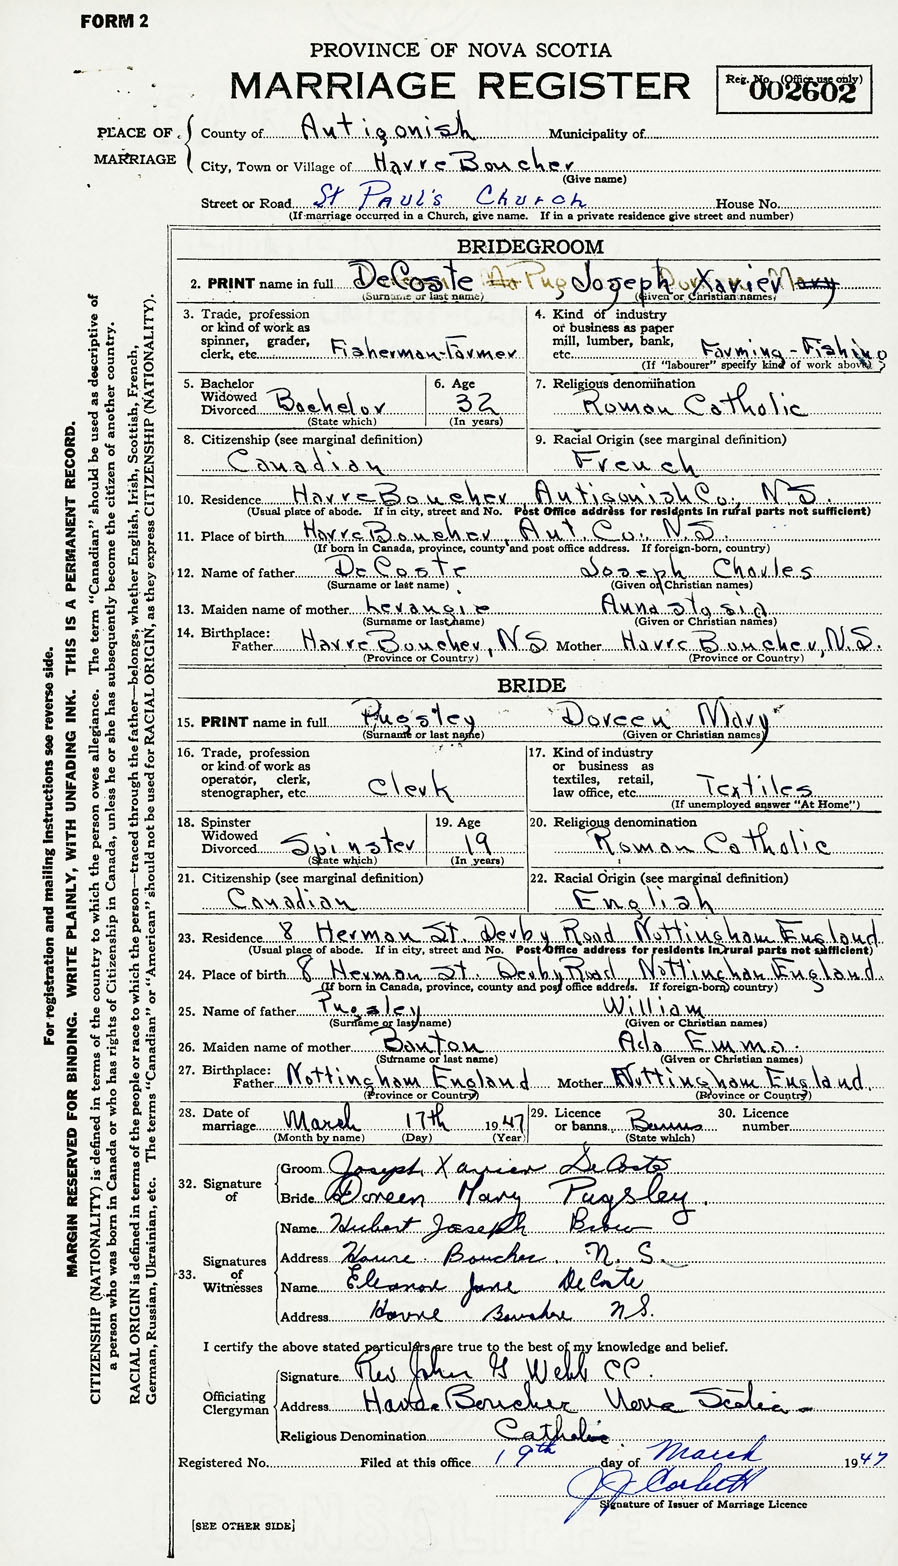 FORM 2
PROVINCE OF NOVA SCOTIA
MARRIAGE REGISTER
Reg. No. (Office use only)
002602
PLACE OF MARRIAGE
County of Antigonish Municipality of
City, Town or Village of Havre Boucher
(Give name)
Street or Road St Paul's Church House No.
(If marriage occurred in a Church, give name. If in a private residence give street and number)
BRIDEGROOM
2. PRINT name in full DeCoste Joseph Xavier Mary
(Surname or last name) (Given or Christian names)
3. Trade, profession or kind of work as spinner, grader, clerk, etc. Fisherman-Farmer
4. Kind of industry or business as paper mill, lumber, bank, etc. Farming-Fishing
(If "labourer" specify kind of work above)
5. Bachelor Widowed Divorced Bachelor
(State which)
6. Age 32
(In years)
7. Religious denomination
Roman Catholic
8. Citizenship (see marginal definition)
Canadian
9. Racial Origin (see marginal definition)
French
10. Residence Havre Boucher, Antigonish Co., N.S.
(Usual place of abode. If in city, street and No. Post Office address for residents in rural parts not sufficient)
11. Place of birth Havre Boucher, Ant. Co., N.S.
(If born in Canada, province, county and post office address. If foreign-born, country)
12. Name of father DeCoste Joseph Charles
(Surname or last name) (Given or Christian names)
13. Maiden name of mother Levangie Annastasia
(Surname or last name) (Given or Christian names)
14. Birthplace: Father Havre Boucher, N.S Mother Havre Boucher, N.S.
(Province or Country) (Province or Country)
BRIDE
15. PRINT name in full Pugsley Doreen Mary
(Surname or last name) (Given or Christian names)
16. Trade, profession or kind of work as operator, clerk, stenographer, etc. Clerk
17. Kind of industry or business as textiles, retail, law office, etc. Textiles
(If unemployed answer "At Home")
18. Spinster Widowed Divorced Spinster
(State which)
19. Age 19
(In years)
20. Religious denomination
Roman Catholic
21. Citizenship (see marginal definition)
Canadian
22. Racial Origin (see marginal definition)
English
23. Residence 8 Herman St. Derby Road Nottingham England
(Usual place of abode. If in city, street and No. Post Office address for residents in rural parts not sufficient)
24. Place of birth 8 Herman St. Derby Road, Nottingham England.
(If born in Canada, province, county and post office address. If foreign-born, country)
25. Name of father Pugsley William
(Surname or last name) (Given or Christian names)
26. Maiden name of mother Banton Ada Emma.
(Surname or last name) (Given or Christian names)
27. Birthplace: Father Nottingham England Mother Nottingham England.
(Province or Country) (Province or Country)
28. Date of marriage March 17th 1947
(Month by name) (Day) (Year)
29. Licence or banns Banns
(State which)
30. Licence number
32. Signature of
Groom Joseph Xavier DeCoste
Bride Doreen Mary Pugsley.
33. Signatures of Witnesses
Name Hubert Joseph
Address Havre Boucher N.S.
Name Eleanor Jane DeCoste
Address Havre Boucher N.S.
I certify the above stated particulars are true to the best of my knowledge and belief.
Officiating Clergyman
Signature Rev John G Webb CC.
Address Havre Boucher Nova Scotia
Religious Denomination Catholic
Registered No. Filed at this office 19th day of March 1947
J J Corbett
Signature of Issuer of Marriage Licence
[SEE OTHER SIDE]
For registration and mailing instructions see reverse side.
MARGIN RESERVED FOR BINDING. WRITE PLAINLY, WITH UNFADING INK. THIS IS A PERMANENT RECORD.
CITIZENSHIP (NATIONALITY) is defined in terms of the country to which the person owes allegiance. The term "Canadian" should be used as descriptive of
a person who was born in Canada or who has rights of Citizenship in Canada, unless he or she has subsequently become the citizen of another country.
RACIAL ORIGIN is defined in terms of the people or race to which the person—traced through the father—belongs, whether English, Irish, Scottish, French,
German, Russian, Ukrainian, etc. The terms "Canadian" or "American" should not be used for RACIAL ORIGIN, as they express CITIZENSHIP (NATIONALITY).